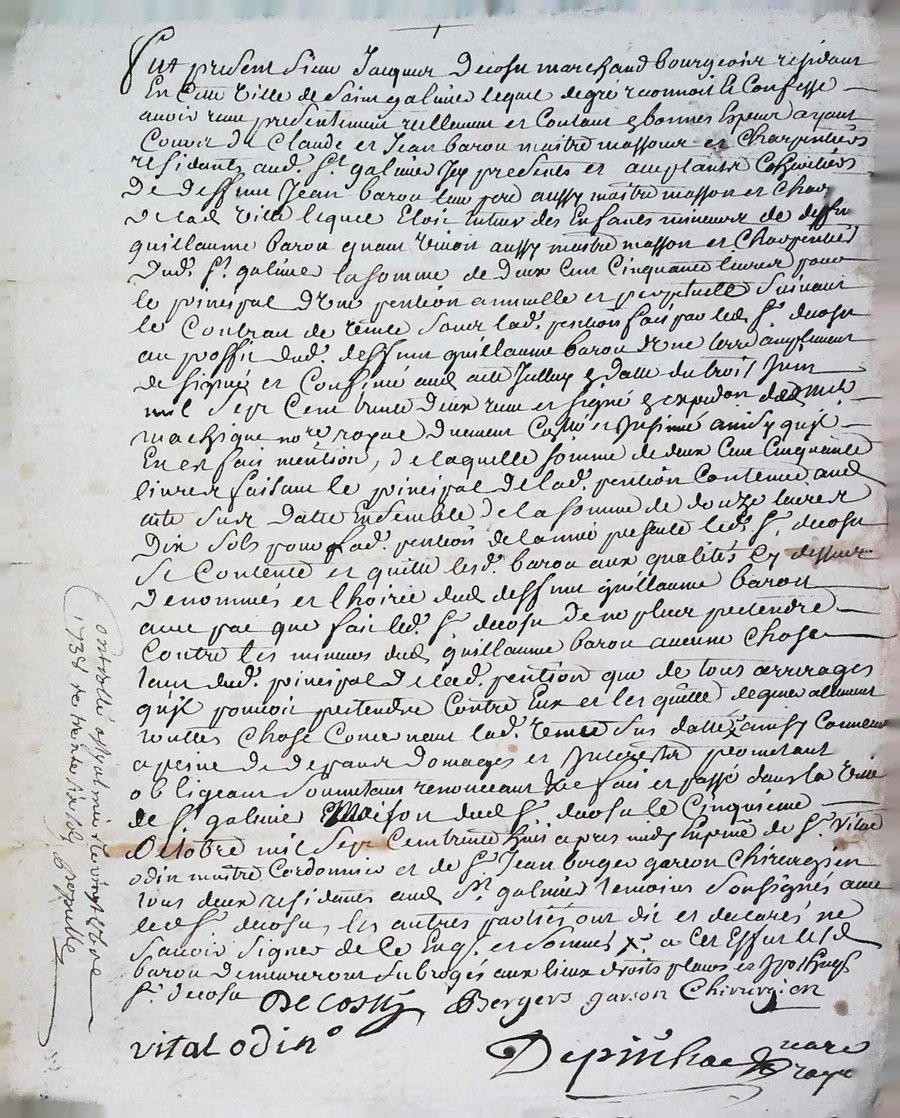 fut present sieur Jacques Decosu marchand bourgeois residant
En Cette ville de saint galmier lequel degré reconnoit et Confesse
avoir reçu presentement reellement et Contant
de Claude et Jean baron maitre massons et Charpentiers
residants aud. St. galmier Jcy presents et acceptants heritiers
De deffunt Jean baron leur pere aussy maitre masson et
De lad ville lequel tuteur des Enfants mineurs de deffu
guillaume baron quant vivoit aussy maitre masson et Charpentier
Dud. St. galmier la somme de Deux Cent Cinquante livres pour
le principal D'une pention annuelle et perpetuelle suivant
le Contrat de vente sous lad. pention fait par led. Sr. decosu
au proffit dud. deffunt guillaume baron D'une terre amplement
designée et Confinée aud acte Datte du trois Juin
mil sept Cent trente deux reçu et signé
nore royal Duement et Jnsinué ainsy qu'il
En est fait mention, De laquelle somme de deux Cent Cinquante
livres faisant le principal De lad. pention Contenue aud
acte sus Datté Ensemble De la somme de douze livres
Dix sols pour lad. pention de l'année presente led. Sr. decosu
se Contente et quitte lesd. baron aux qualités Cy dessus
Denommés et l'hoirie dud deffunt guillaume baron
avec pac que fait led. Sr. decosu de ne plus pretendre
Contre les mineurs dud guillaume baron aucune Chose
tant dud. principal De lad. pention que de tous arrerages
qu'il pouvoit pretendre Contre Eux et les quitte
touttes Chose Concernant lad. vente sus dattée ainsy Convenu
a peine de depans Domages et Jnterests promettant
obligeant soumettant renonceant fait et passé dans la ville
de St. galmier Maison dud Sr. decosu le Cinquieme
Octobre mil sept Cent trente huit apres midy En presce de Sr. vital
odin maitre Cordonnier et de Sr. Jean berger garson Chirurgien
tous deux residents aud St. galmier temoins soussignés avec
led Sr. decosu, les autres parties ont dit et declarés ne
savoir signer de Ce Enqs. et sommés a Cet Effet lesd
baron demureront subrogés aux lieux droits places et
Sr. decosu Decosu Bergers garson Chirurgien
vital odin
Depinhac nore royal
Controllé a st galmier le vingt 8bre
1738 reçu trente six sols